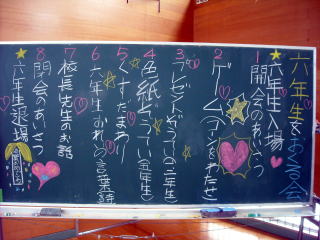 六年生をおくる会
★六年生入場
1 開会のあいさつ
2 ゲーム(アンをわたせ)
3 プレゼントぞうてい(一、二年生)
4 色紙ぞうてい(五年生)
5 くすだまわり
6 六年生おれいの言葉(詩)
7 校長先生のお話
8 閉会のあいさつ
★六年生退場